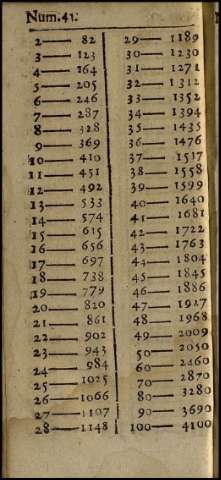 Num.41.
2— 82
3— 123
4— 264
5— 205
6— 246
7— 287
8— 328
9— 369
10— 410
11— 451
12— 492
13— 533
14— 574
15— 615
16— 656
17— 697
18— 738
19— 779
20— 820
21— 861
22— 902
23— 943
24— 984
25— 1025
26— 1066
27— 1107
28— 1148
29— 1189
30— 1230
31— 1271
32— 1312
33— 1352
34— 1394
35— 1435
36— 1476
37— 1517
38— 1558
39— 1599
40— 1640
41— 1681
42— 1722
43— 1763
44— 1804
45— 1845
46— 1886
47— 1927
48— 1968
49— 2009
50— 2050
60— 2460
70— 2870
80— 3280
90— 3690
100— 4100